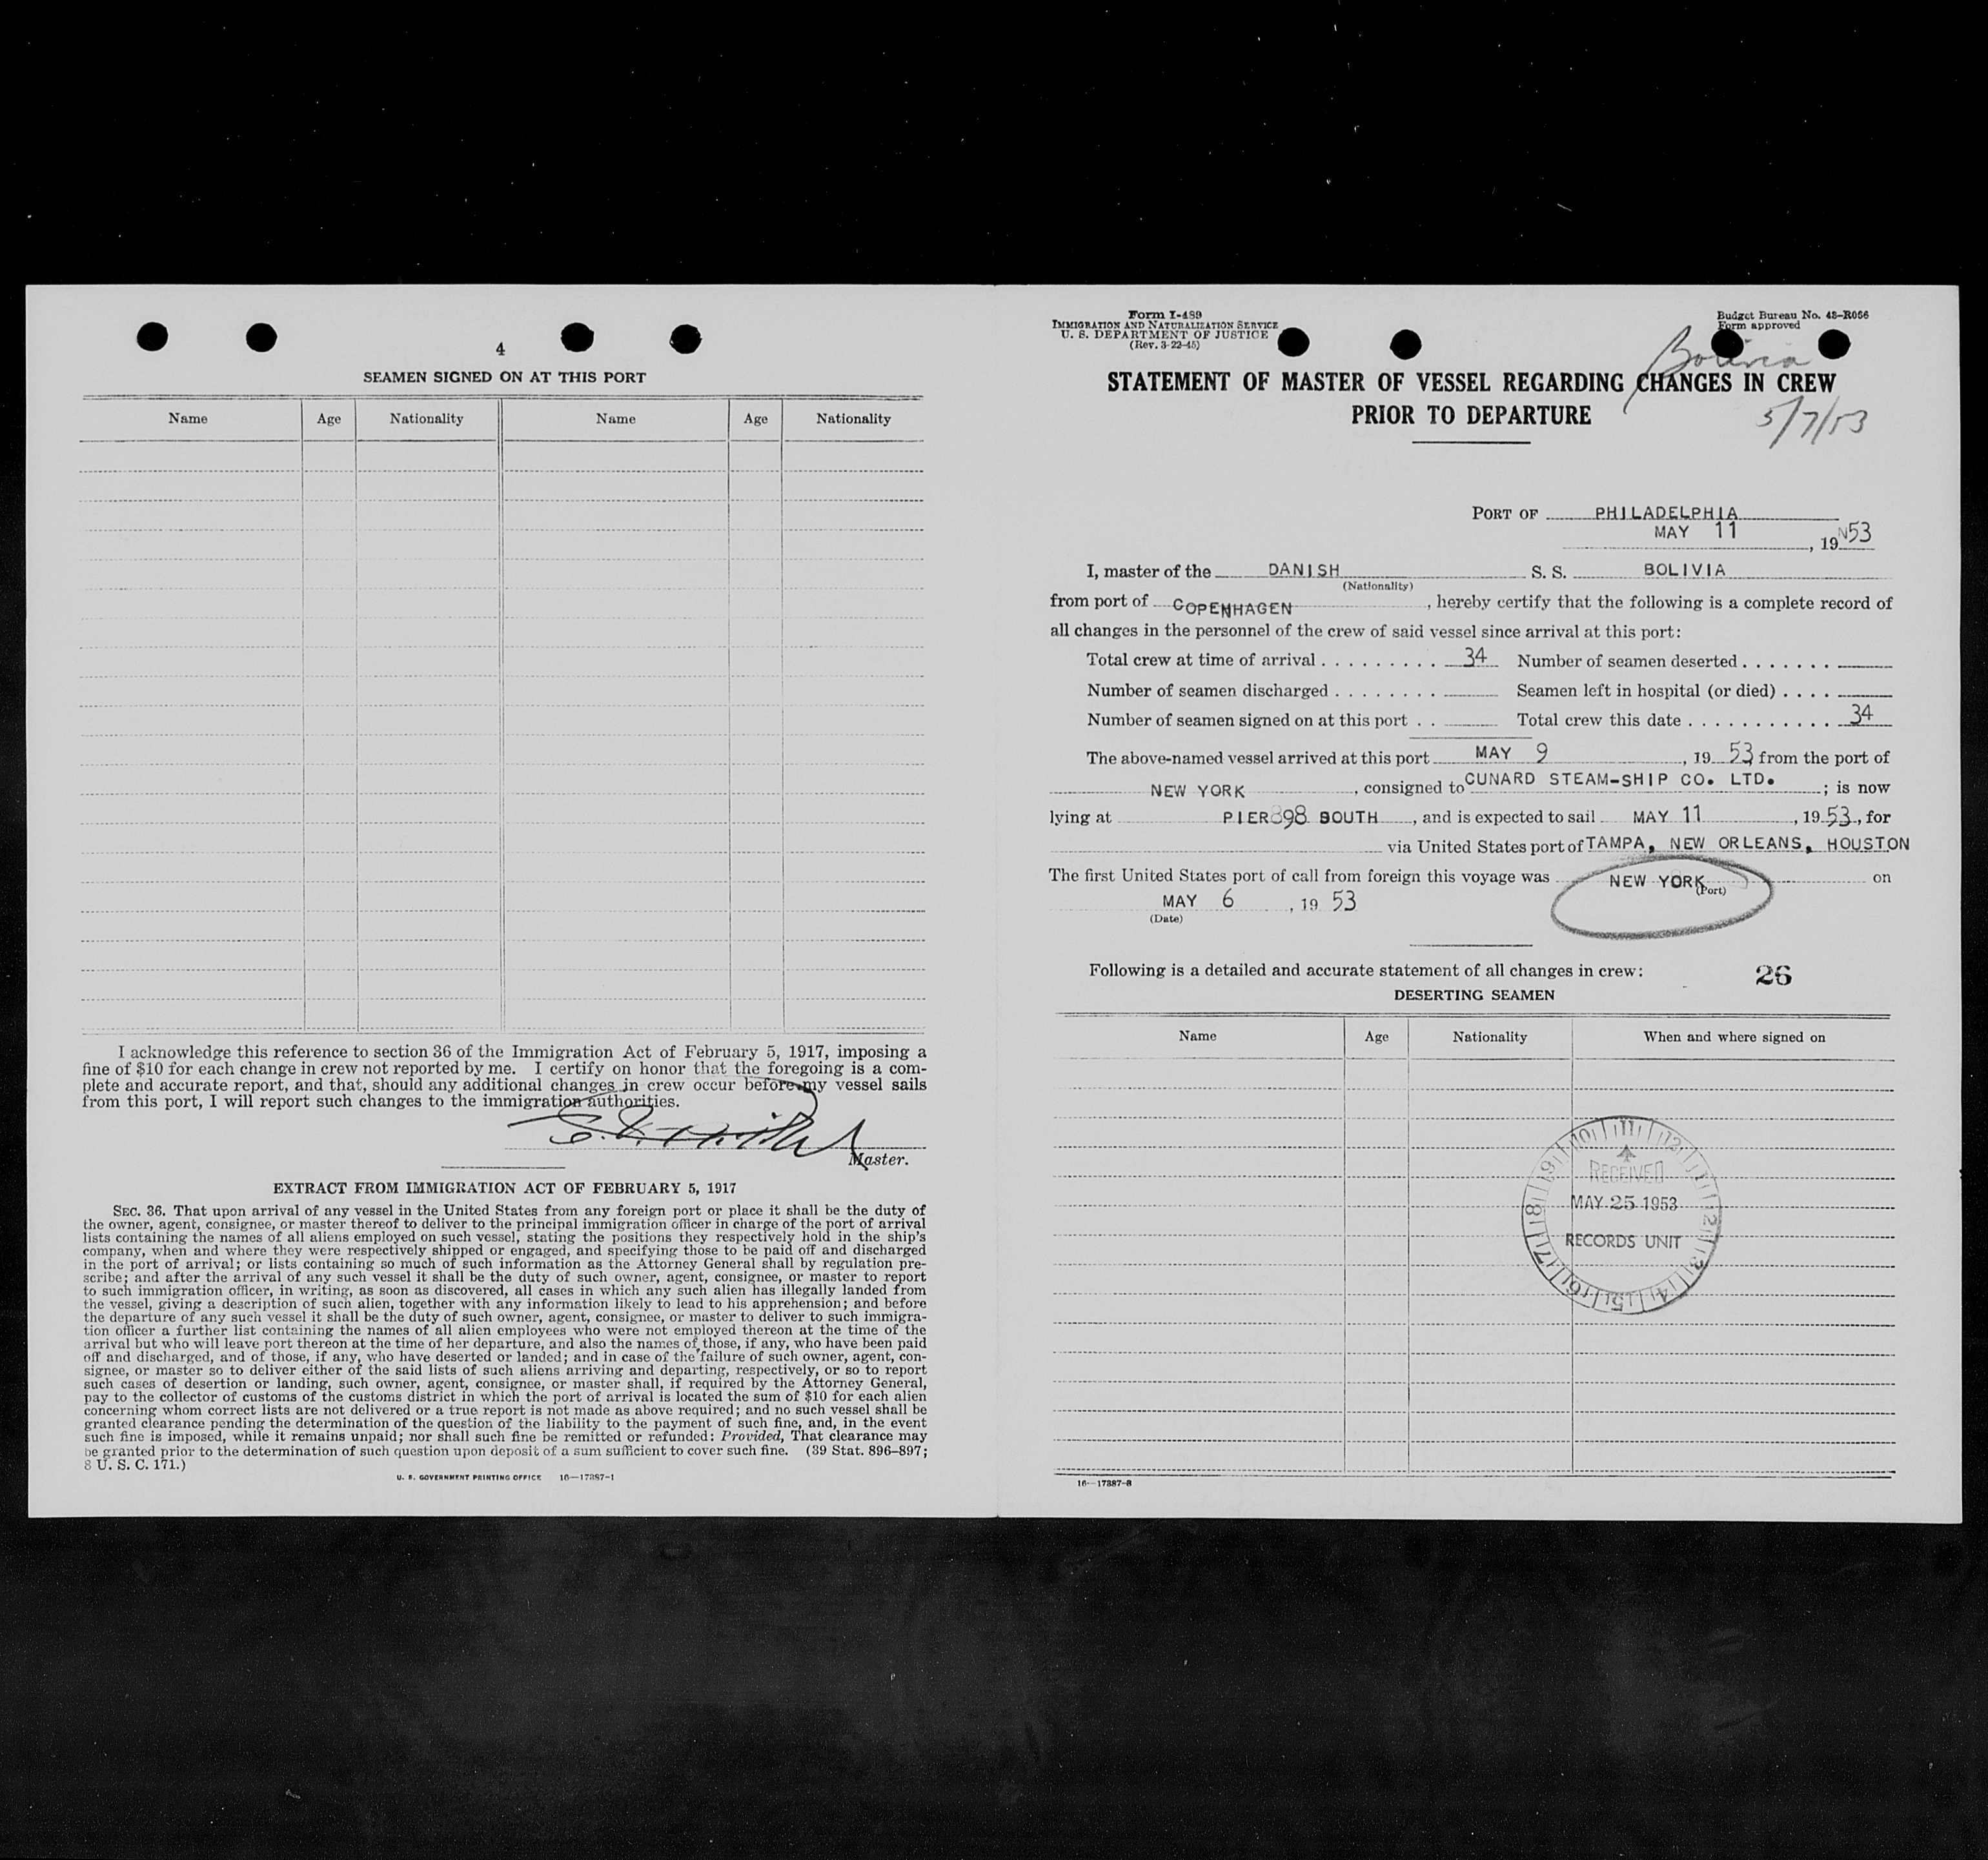 4
SEAMEN SIGNED ON AT THIS PORT
Name Age Nationality Name Age Nationality
I acknowledge this reference to section 36 of the Immigration Act of February 5, 1917, imposing a
fine of $10 for each change in crew not reported by me. I certify on honor that the foregoing is a com-
plete and accurate report, and that, should any additional changes in crew occur before my vessel sails
from this port, I will report such changes to the immigration authorities.
Master.
EXTRACT FROM IMMIGRATION ACT OF FEBRUARY 5, 1917
SEC. 36. That upon arrival of any vessel in the United States from any foreign port or place it shall be the duty of
the owner, agent, consignee, or master thereof to deliver to the principal immigration officer in charge of the port of arrival
lists containing the names of all aliens employed on such vessel, stating the positions they respectively hold in the ship's
company, when and where they were respectively shipped or engaged, and specifying those to be paid off and discharged
in the port of arrival; or lists containing so much of such information as the Attorney General shall by regulation pre-
scribe; and after the arrival of any such vessel it shall be the duty of such owner, agent, consignee, or master to report
to such immigration officer, in writing, as soon as discovered, all cases in which any such alien has illegally landed from
the vessel, giving a description of such alien, together with any information likely to lead to his apprehension; and before
the departure of any such vessel it shall be the duty of such owner, agent, consignee, or master to deliver to such immigra-
tion officer a further list containing the names of all alien employees who were not employed thereon at the time of the
arrival but who will leave port thereon at the time of her departure, and also the names of those, if any, who have been paid
off and discharged, and of those, if any, who have deserted or landed; and in case of the failure of such owner, agent, con-
signee, or master so to deliver either of the said lists of such aliens arriving and departing, respectively, or so to report
such cases of desertion or landing, such owner, agent, consignee, or master shall, if required by the Attorney General,
pay to the collector of customs of the customs district in which the port of arrival is located the sum of $10 for each alien
concerning whom correct lists are not delivered or a true report is not made as above required; and no such vessel shall be
granted clearance pending the determination of the question of the liability to the payment of such fine, and, in the event
such fine is imposed, while it remains unpaid; nor shall such fine be remitted or refunded: Provided, That clearance may
be granted prior to the determination of such question upon deposit of a sum sufficient to cover such fine. (39 Stat. 896–897;
8 U. S. C. 171.)
U. S. GOVERNMENT PRINTING OFFICE 16—17387-1
Form I-489
IMMIGRATION AND NATURALIZATION SERVICE
U. S. DEPARTMENT OF JUSTICE
(Rev. 3-22-45)
Budget Bureau No. 43-R066
Form approved
Bolivia
STATEMENT OF MASTER OF VESSEL REGARDING CHANGES IN CREW
PRIOR TO DEPARTURE
5/7/53
PORT OF PHILADELPHIA
MAY 11, 1953
I, master of the DANISH S. S. BOLIVIA
(Nationality)
from port of COPENHAGEN, hereby certify that the following is a complete record of
all changes in the personnel of the crew of said vessel since arrival at this port:
Total crew at time of arrival . . . . . . . . . 34 Number of seamen deserted . . . . . . .
Number of seamen discharged . . . . . . . . Seamen left in hospital (or died) . . . .
Number of seamen signed on at this port . . Total crew this date . . . . . . . . . . . 34
The above-named vessel arrived at this port MAY 9, 1953 from the port of
NEW YORK, consigned to CUNARD STEAM-SHIP CO. LTD.; is now
lying at PIER 98 SOUTH, and is expected to sail MAY 11, 1953, for
via United States port of TAMPA, NEW ORLEANS, HOUSTON
The first United States port of call from foreign this voyage was NEW YORK on
(Port)
MAY 6, 19 53
(Date)
Following is a detailed and accurate statement of all changes in crew: 26
DESERTING SEAMEN
Name Age Nationality When and where signed on
10 11 12 1 2 3 4 5 6 7 8 9
RECEIVED
MAY 25 1953
RECORDS UNIT
16—17387-3